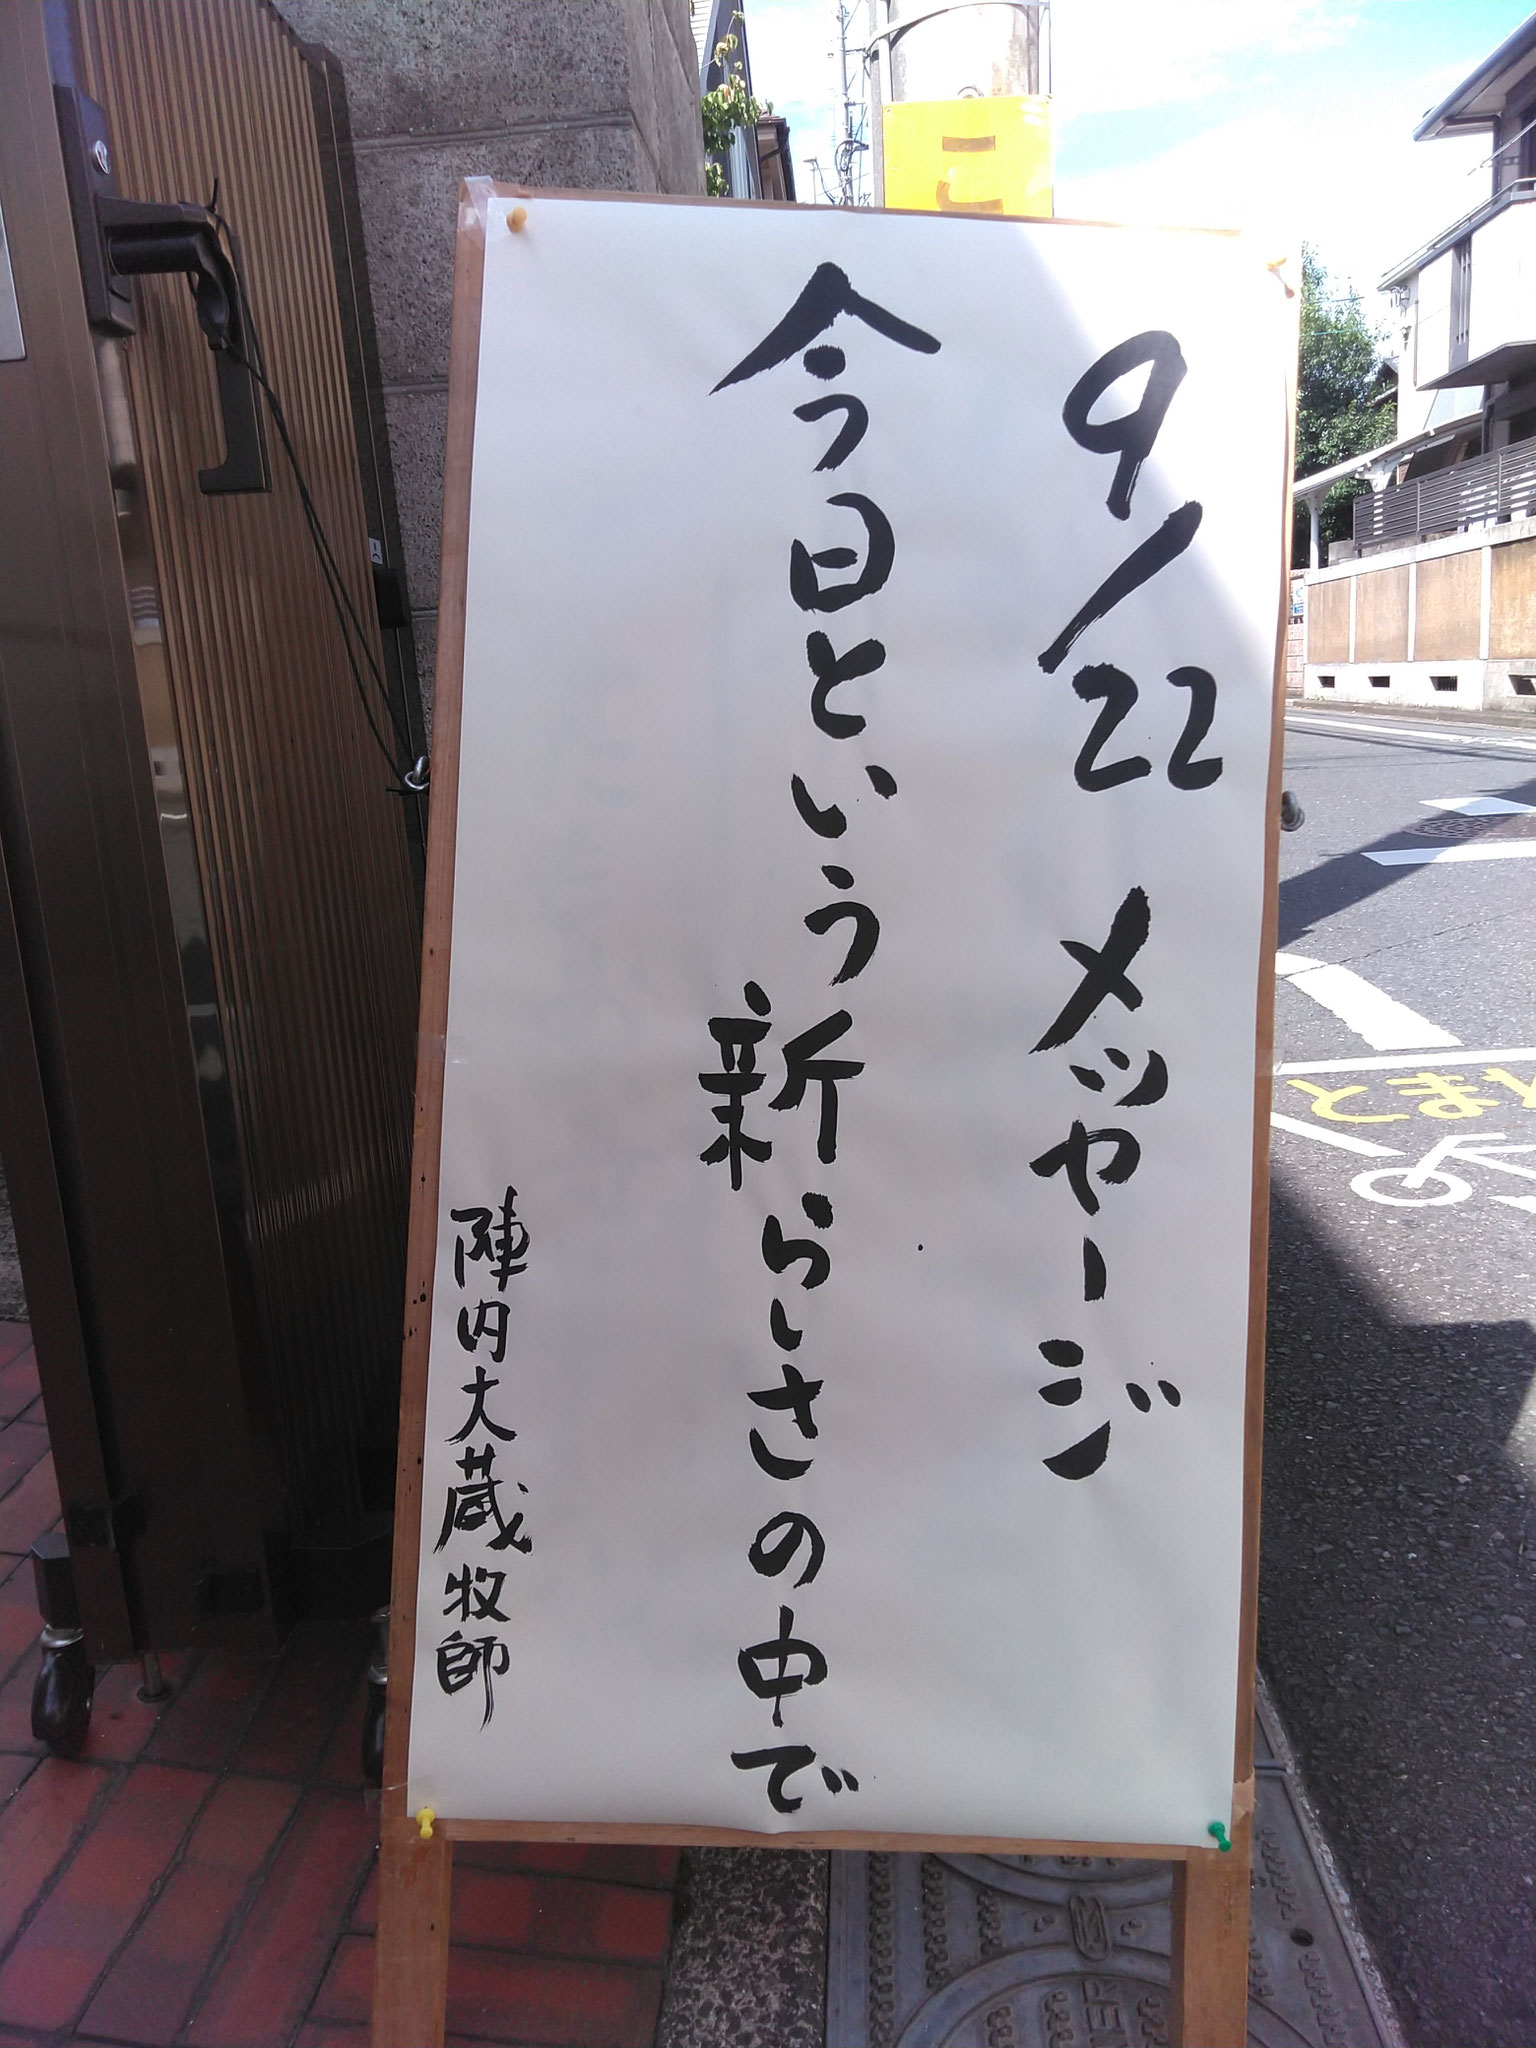 9/22 メッセージ
今日という新らしさの中で
陣内大蔵牧師
こ
とまれ